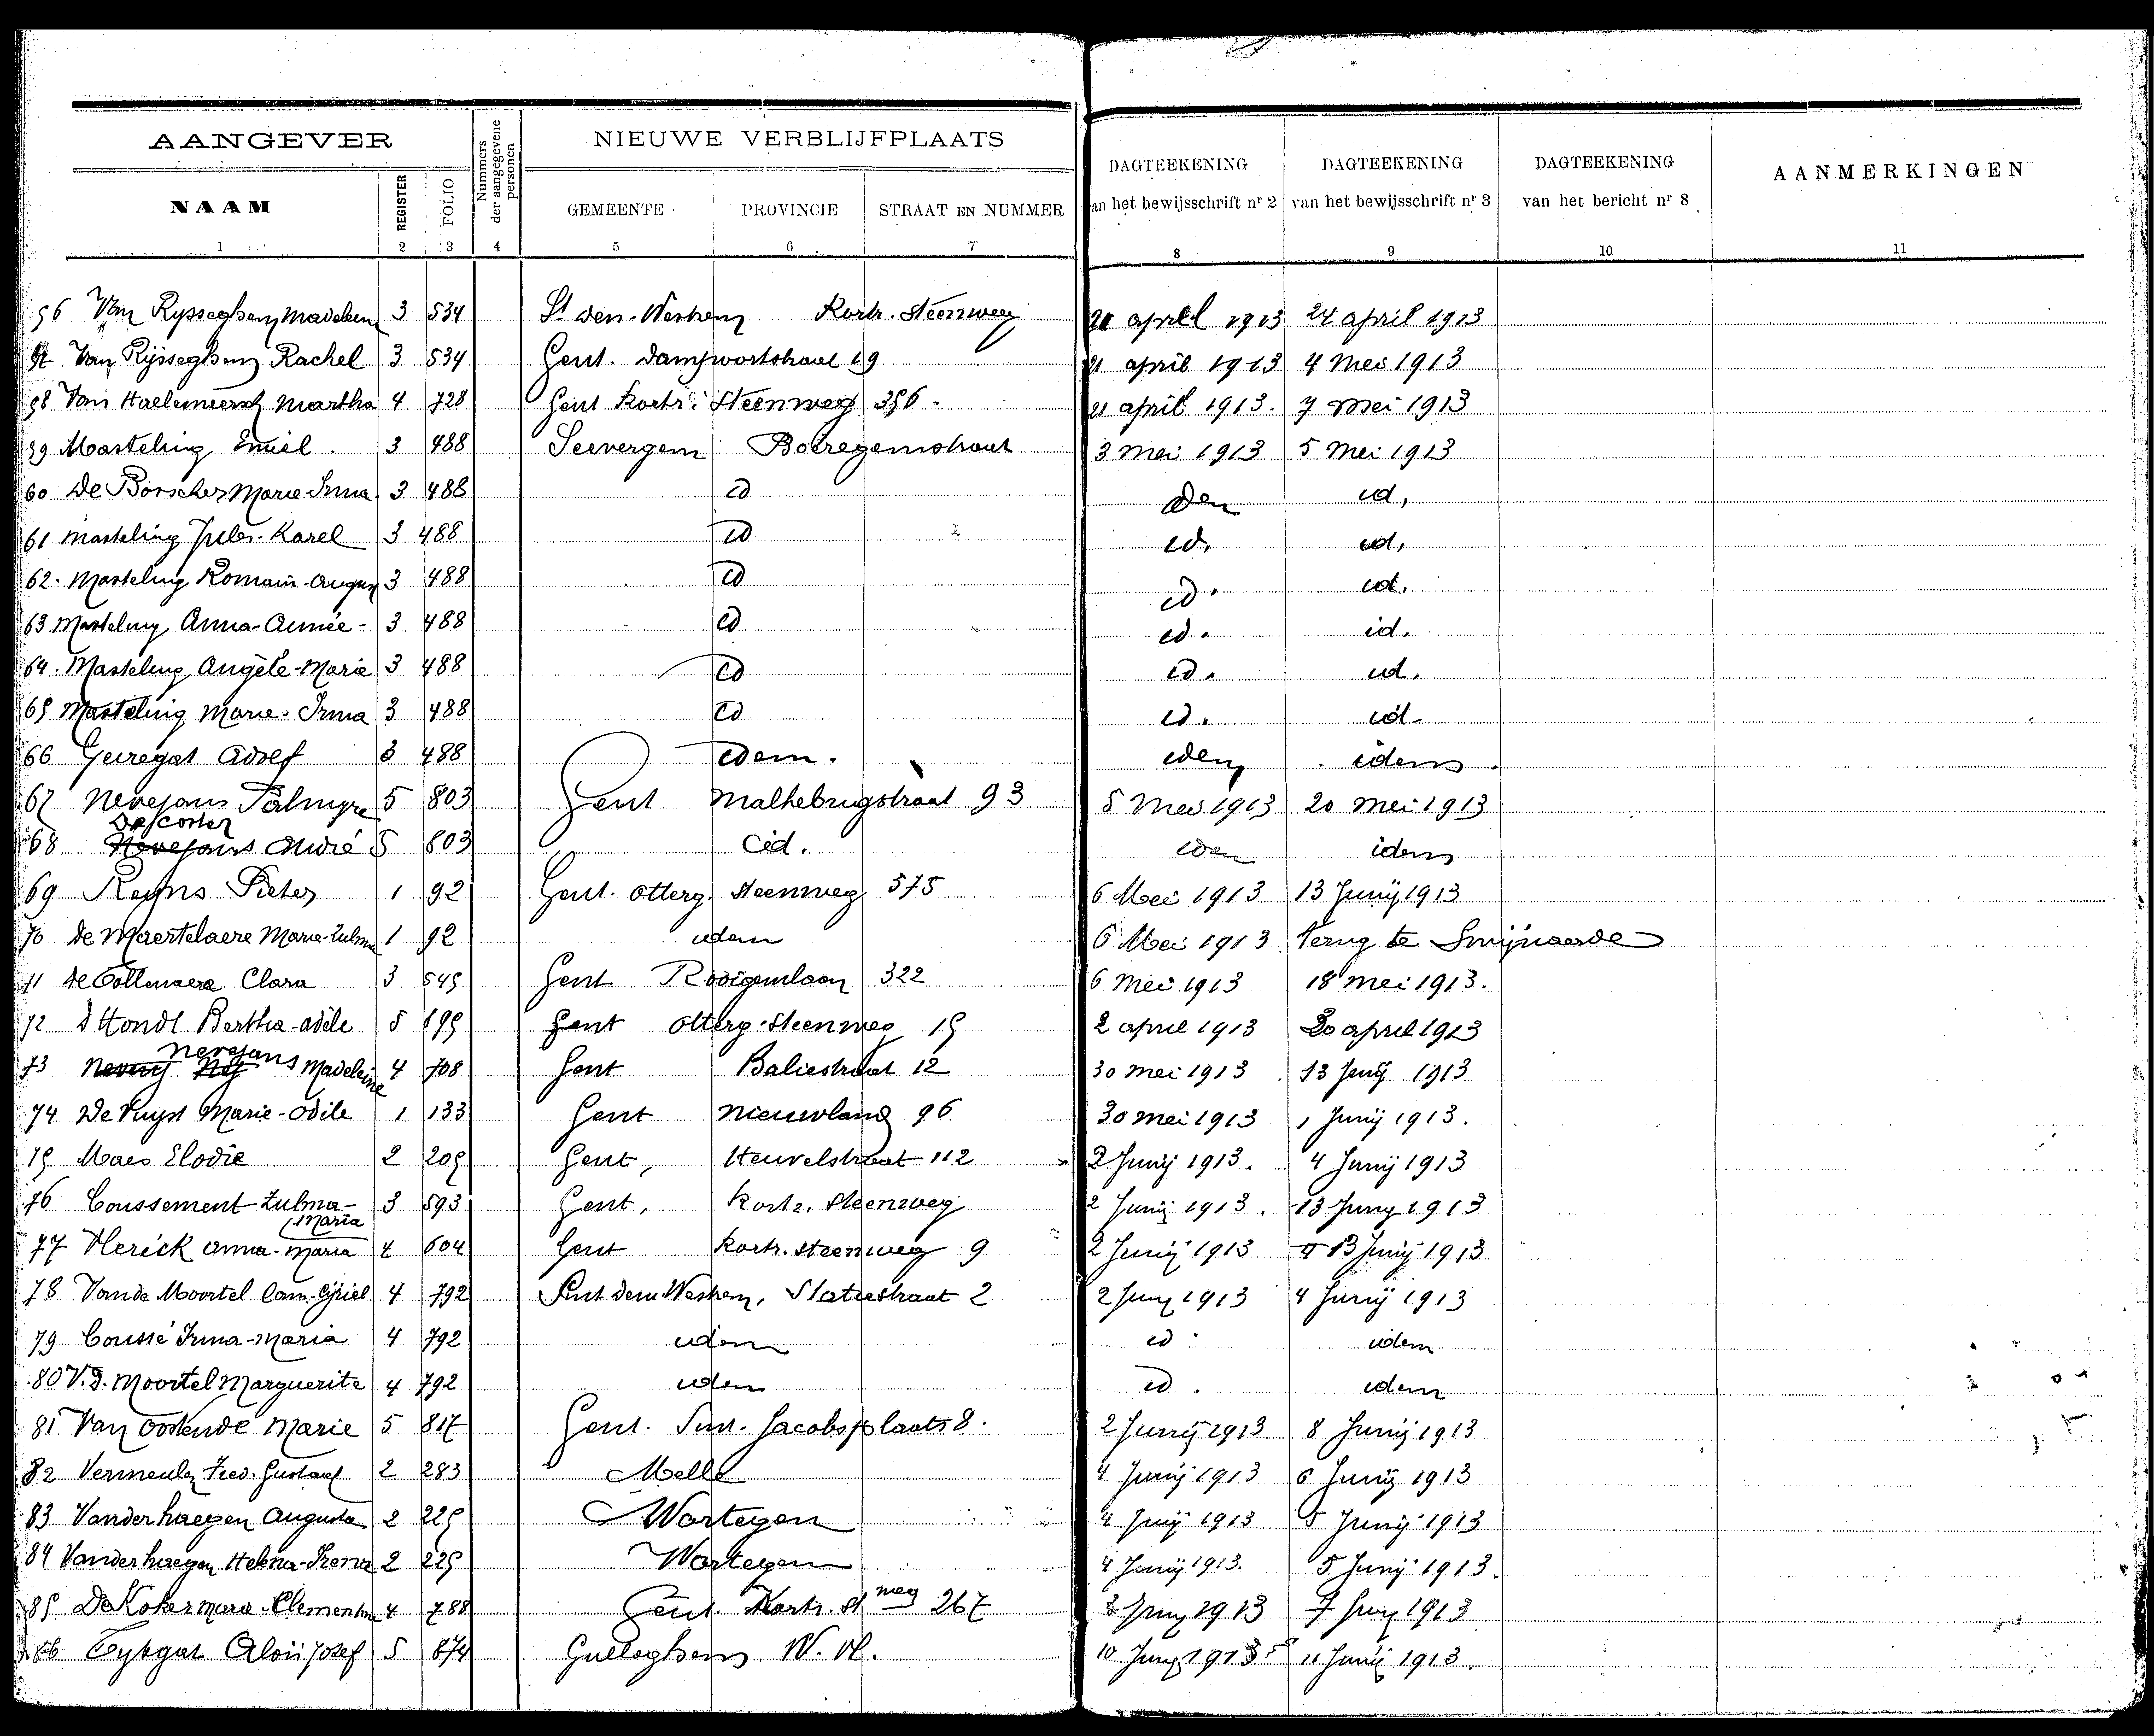 AANGEVER NIEUWE VERBLIJFPLAATS
NAAM REGISTER FOLIO Nummers der aangegevene personen GEMEENTE PROVINCIE STRAAT EN NUMMER DAGTEEKENING an het bewijsschrift nr 2 DAGTEEKENING van het bewijsschrift nr 3 DAGTEEKENING van het bericht nr 8 AANMERKINGEN
1 2 3 4 5 6 7 8 9 10 11
56 Van Rysseghem Madelein 3 534 St den-Westrem Kortr. Steenweg april 1913 24 april 1913
Van Rijsseghem Rachel 3 534 Gent. Dampoortstraat 19 21 april 1913 4 Mei 1913
58 Van Haelemeersch Martha 4 728 Gent Kortr. Steenweg 21 april 1913. 7 Mei 1913
59 Masteling Emiel. 3 488 Seevergem 3 Mei 1913 5 Mei 1913
60 De Borscher Marie Irma 3 488 id id,
61 Masteling Jules-Karel 3 488 id id, id,
62. Masteling Romain-August 3 488 id id. id.
63 Masteling Anna-Aimée- 3 488 id id. id.
64. Masteling Angele-Marie 3 488 id id. id.
65 Masteling Marie-Irma 3 488 id id. id.
66 Geiregat Adolf 3 488 idem. idem idem.
67 Nevejans Palmyre 5 803 Gent Malhebrugstraat 93 5 Mei 1913 20 Mei 1913
Descoster
68 Nevejans André 5 803 id. idem idem
69 Reyns Pieter 1 92 Gent. Otterg. Steenweg 575 6 Mei 1913 13 Junij 1913
70 De Maertelaere Marie-Zulma 1 92 idem 6 Mei 1913 Terug te Swijnaerde
71 Clara 3 545 Gent Rooigemlaan 322 6 Mei 1913 18 Mei 1913.
72 D'Hondt Bertha-Adèle 5 Gent Otterg-Steenweg 15 2 april 1913 20 april 1913
Nevejans
73 Madeleine 4 708 Gent Baliestraat 12 30 Mei 1913 13 Junij 1913
74 De Puyst Marie-Odile 1 133 Gent Nieuwland 96 30 Mei 1913 1 Junij 1913.
75 Maes Elodie 2 205 Gent, Heuvelstraat 112 2 Junij 1913. 4 Junij 1913
76 Coussement Zulma- 3 593 Gent, Kortr. Steenweg 2 Junij 1913. 13 Junij 1913
Maria
77 Herick Anna-Maria 4 604 Gent Kortr. Steenweg 9 2 Junij 1913 13 Junij 1913
78 Vande Moortel Cam-Cyriel 4 792 Sint den Westrem, Statiestraat 2 2 Junij 1913 4 Junij 1913
79 Coussé Irma-Maria 4 792 idem id idem
80 V.d. Moortel Marguerite 4 792 idem id. idem
81 Van Oostende Marie 5 817 Gent. Sint-Jacobsplaats 8. 2 Junij 1913 8 Junij 1913
82 Vermeulen Fred. Gustaaf 2 283 Melle 4 Junij 1913 6 Junij 1913
83 Vanderhaegen Augusta 2 225 Wortegem 4 Junij 1913 5 Junij 1913
84 Vanderhaegen Helena-Irena 2 225 Wortegem 4 Junij 1913. 5 Junij 1913.
85 De Koker Maria-Clementina 4 788 Gent. Kortr. St weg 267 Junij 1913 7 Junij 1913
86 Eykgat Aloïs Josef 5 874 Gulleghem W. Vl. 10 Junij 1913 11 Junij 1913.